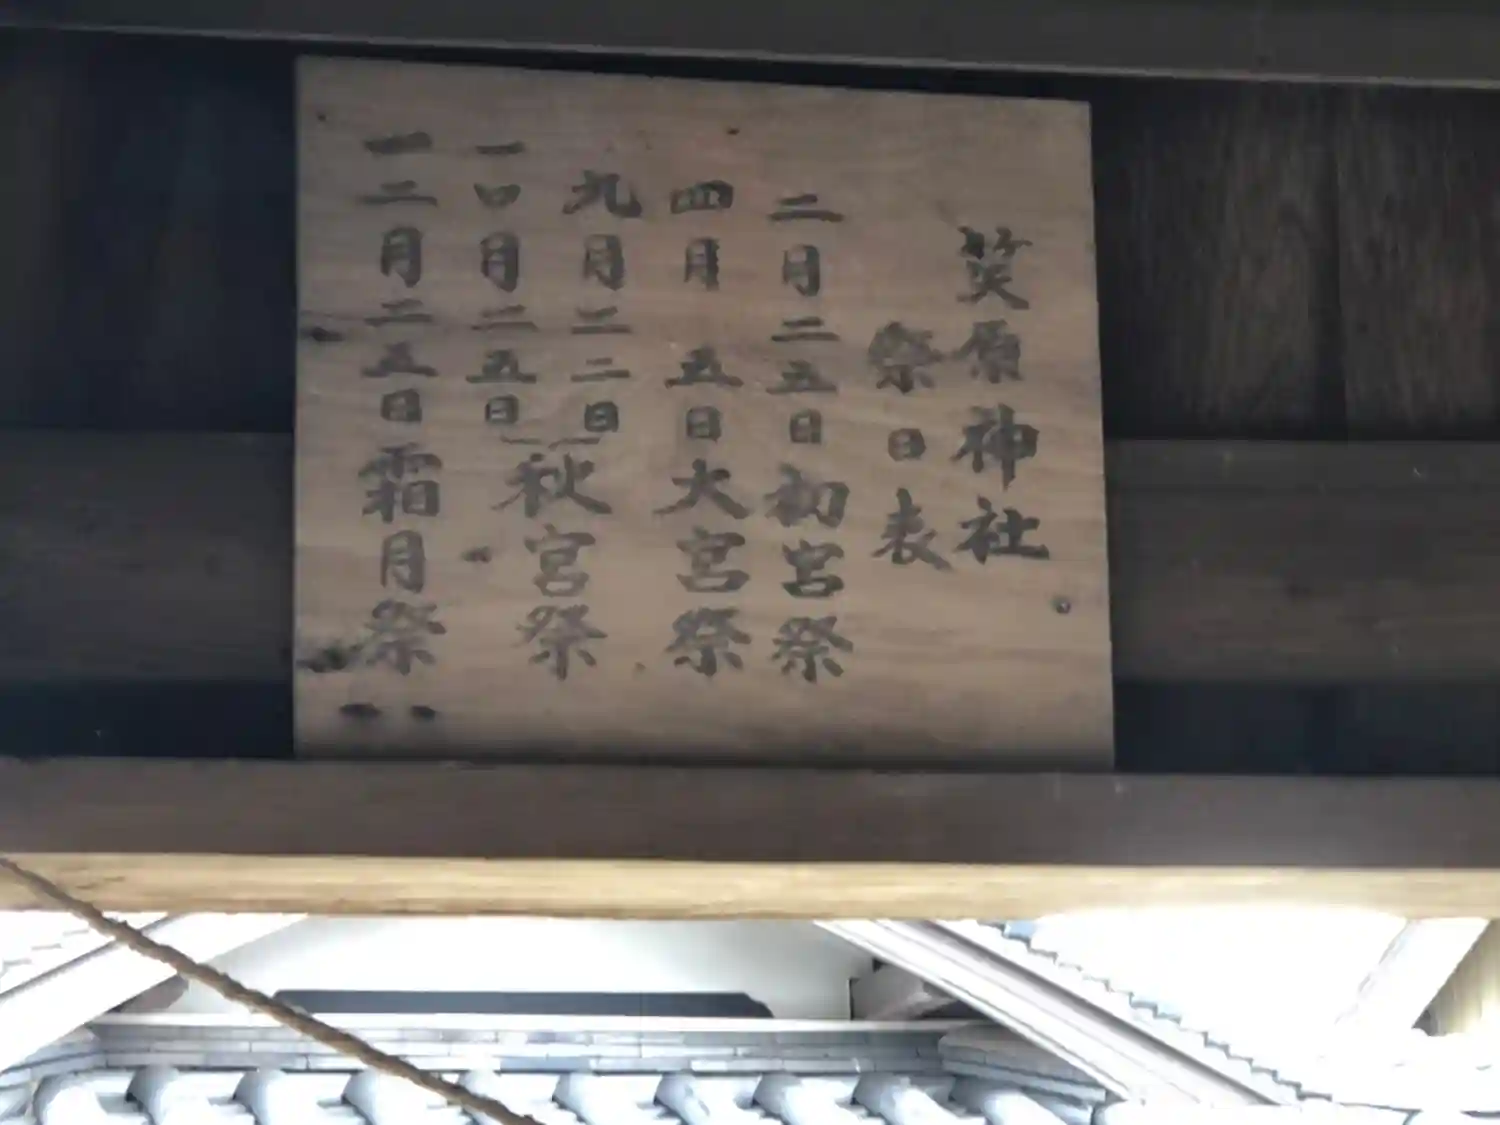 笶原神社
祭日表
二月二五日初宮祭
四月五日大宮祭
九月二二日
一〇月二五日
秋宮祭
一二月二五日霜月祭